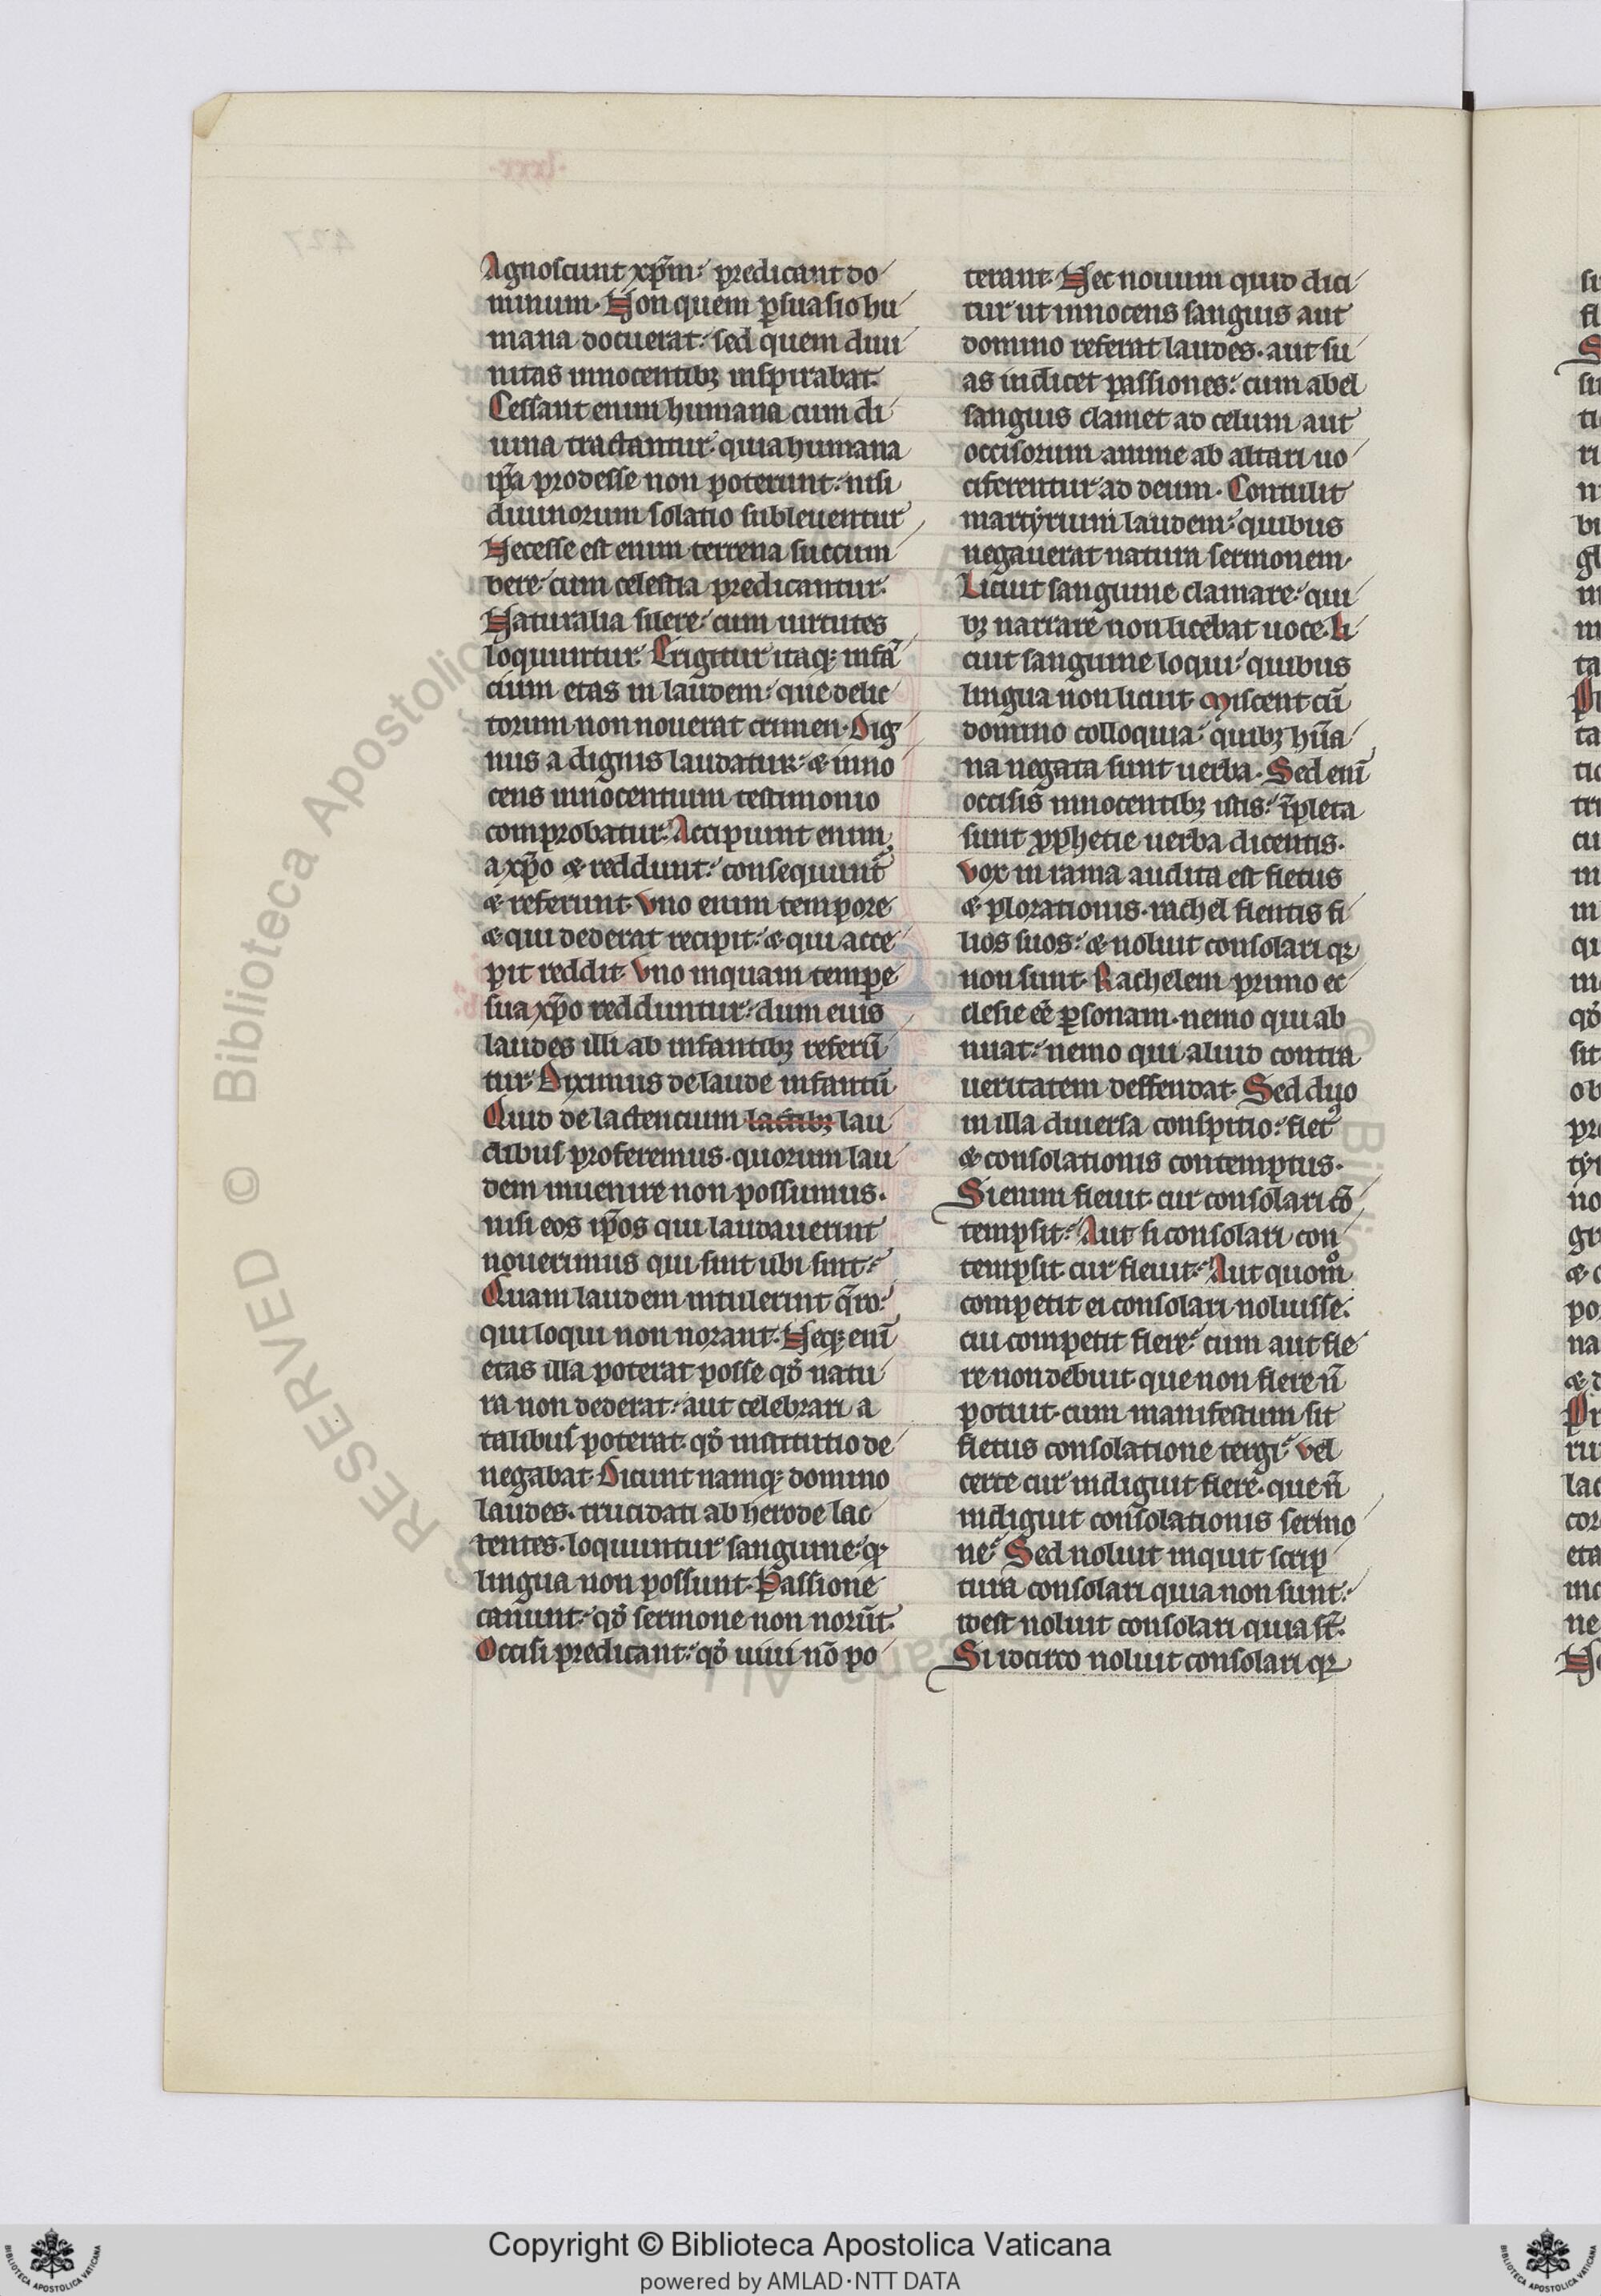 Agnoscunt xp̄m: predicant do
minum. Non quem ꝑsuasio hu
mana docuerat: sed quem diui
nitas innocentibꝫ inspirabat.
Cessant enim humana cum di
uina tractantur. quia humana
ip̄a prodesse non poterunt: nisi
diuinorum solatio subleuentur
Necesse est enim terrena succum
bere: cum celestia predicantur.
Naturalia silere: cum uirtutes
loquuntur. Erigitur itaqꝫ infā
cium etas in laudem: que delic
torum non nouerat crimen. Dig
nus a dignis laudatur: ⁊ inno
cens innocentium testimonio
comprobatur. Accipiunt enim
a xp̄o ⁊ reddunt: consequunt᷑
⁊ referunt. Vno enim tempore
⁊ qui dederat recipit: ⁊ qui acce
pit reddit. Vno inquam temꝑe
sua xp̄o redduntur: dum eius
laudes illi ab infantibꝫ referū
tur. Diximus de laude infantū
Quid de lactencium lactībꝫ lau
dibus proferemus. quorum lau
dem inuenire non possumus.
nisi eos ip̄os qui laudauerint
nouerimus qui sint ubi sint:
Quam laudem intulerint q̄ro:
qui loqui non norant. Neqꝫ eni̅
etas illa poterat posse qd̓ natu
ra non dederat: aut celebrari a
talibus poterat. qd̓ institutio de
negabat. Dicunt namqꝫ domino
laudes. trucidati ab herode lac
tentes. loquuntur sanguine: qꝛ
lingua non possunt. Passione
canunt: qd̓ sermone non norūt.
Occisi predicant: qd̓ uiui nō po
terant. Nec nouum quid dici
tur ut innocens sanguis aut
domino referat laudes. aut su
as indicet passiones: cum abel
sanguis clamet ad celum aut
occisorum anime ab altari uo
ciferentur ad deum. Contulit
martyrium laudem: quibus
negauerat natura sermonem.
Licuit sanguine clamare: qui
bꝫ narrare non licebat uoce. Li
cuit sanguine loqui: quibus
lingua non licuit. Miscent cū
domino colloquia: quibꝫ hūa
na negata sunt uerba. Sed eni̅
occisis innocentibꝫ istis: īpleta
sunt ꝓphetie uerba dicentis.
Vox in rama audita est fletus
⁊ plorationis. rachel flentis fi
lios suos: ⁊ noluit consolari qꝛ
non sunt. Rachelem primo ec
clesie eē ꝑsonam. nemo qui ab
nuat: nemo qui aliud contra
ueritatem deffendat. Sed duo
in illa diuersa conspitio: flet᷒
⁊ consolationis contemptus.
Si enim fleuit cur consolari cō
tempsit: Aut si consolari con
tempsit cur fleuit: Aut quom̊
competit ei consolari noluisse:
cui competit flere: cum aut fle
re non debuit que non flere n̄
potuit. cum manifestum sit
fletus consolatione tergi: Vel
certe cur indiguit flere. que n̄
indiguit consolationis sermo
ne: Sed noluit inquit scrip
tura consolari quia non sunt:
idest noluit consolari quia st̄.
Si idcirco noluit consolari qꝛ
Copyright © Biblioteca Apostolica Vaticana
powered by AMLAD·NTT DATA